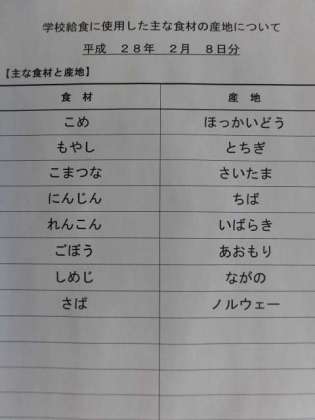 学校給食に使用した主な食材の産地について
平成　２８年　２月　８日分
【主な食材と産地】
食　材　産　地
こめ　ほっかいどう
もやし　とちぎ
こまつな　さいたま
にんじん　ちば
れんこん　いばらき
ごぼう　あおもり
しめじ　ながの
さば　ノルウェー